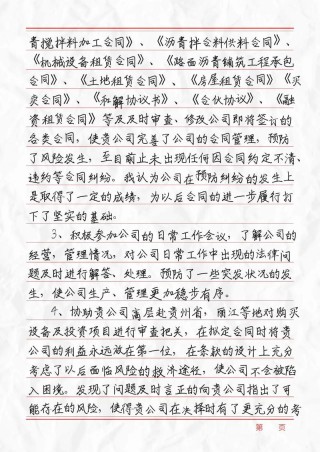 青搅拌料加工合同》、《沥青拌合料供料合同》、
《机械设备租赁合同》、《路面沥青铺筑工程承包
合同》、《土地租赁合同》、《房屋租赁合同》《买
卖合同》、《和解协议书》、《合伙协议》、《融
资租赁合同》等及及时审查、修改公司即将签订的
各类合同,使贵公司完善了公司的合同管理,预防
了风险发生,至目前止未出现任何因合同约定不清、
违约等合同纠纷。我认为公司在预防纠纷的发生上
是取得了一定的成绩,为以后合同的进一步履行打
下了坚实的基础。
3、积极参加公司的日常工作会议,了解公司的
经营,管理情况,对公司日常工作中出现的法律问
题及时进行解答、处理。预防了一些突发状况的发
生,使公司生产、管理更加稳步有序。
4、协助贵公司高层赴贵州省,丽江等地对购买
设备及投资项目进行审查把关,在拟定合同时将贵
公司的利益永远放在第一位,在条款的设计上充分
考虑了以后面临风险的救济途径,使公司不会被陷
入困境。发现了问题及时言正的向贵公司指出了可
能存在的风险,使得贵公司在失择时有了更充分的考
第 页